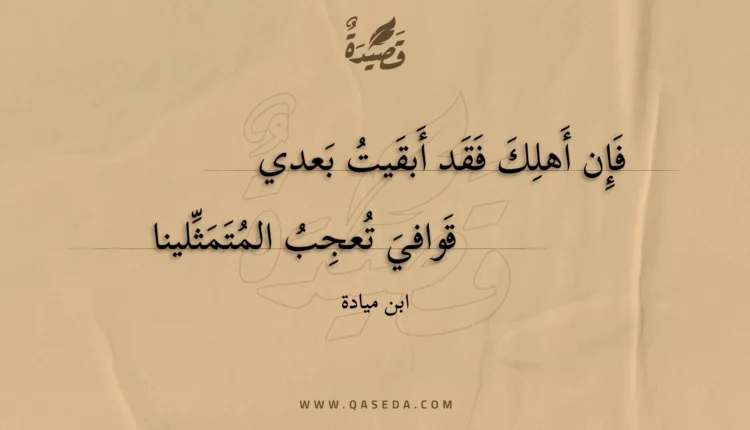 قَصِيْدَةٌ
فَإِن أَهلِكَ فَقَد أَبقَيتُ بَعدي
قَوافيَ تُعجِبُ المُتَمَثِّلينا
ابن ميادة
WWW.QASEDA.COM